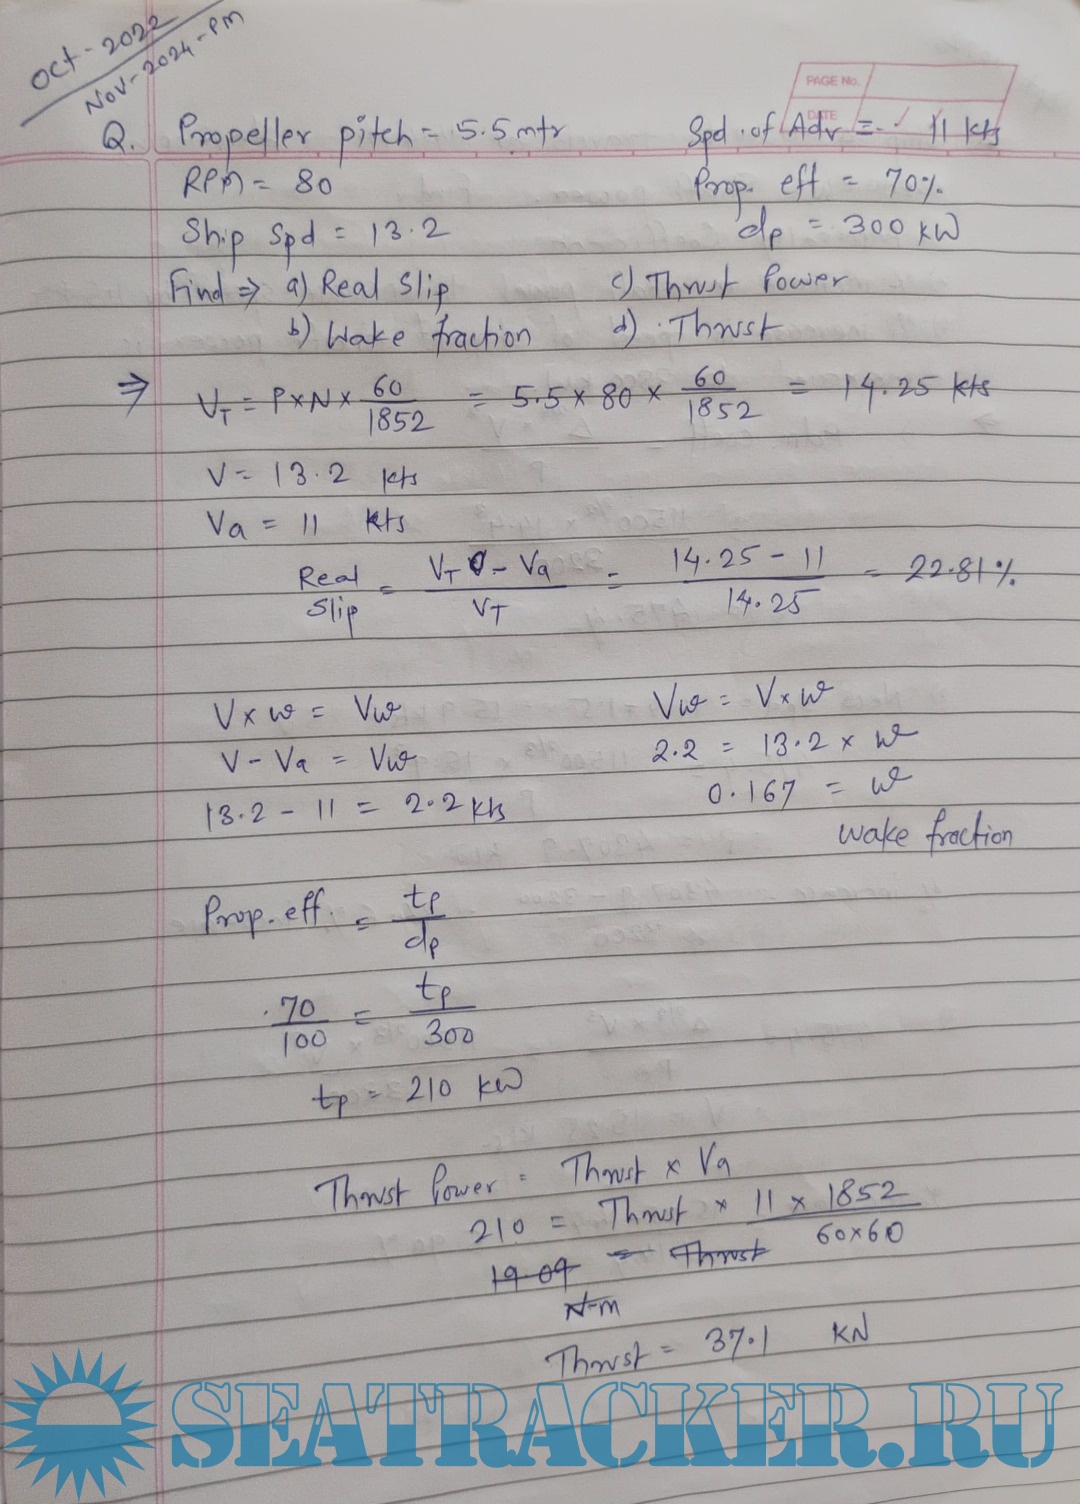 Oct - 2022
Nov - 2024 - PM
PAGE No.
DATE
Q. Propeller pitch = 5.5 mtr Spd. of Adv = 11 kts
RPM = 80 Prop. eff = 70%.
Ship Spd = 13.2 dp = 300 kW
Find ⇒ a) Real Slip c) Thrust Power
b) Wake fraction d) Thrust
⇒ VT = P x N x 60/1852 = 5.5 x 80 x 60/1852 = 14.25 kts
V = 13.2 kts
Va = 11 kts
Real Slip = VT - Va / VT = 14.25 - 11 / 14.25 = 22.81%
V x w = Vw Vw = V x w
V - Va = Vw 2.2 = 13.2 x w
13.2 - 11 = 2.2 kts 0.167 = w
wake fraction
Prop. eff. = tp/dp
70/100 = tp/300
tp = 210 kW
Thrust Power = Thrust x Va
210 = Thrust x 11 x 1852 / 60x60
19.09 = Thrust
N-m
Thrust = 37.1 KN
SEATRACKER.RU